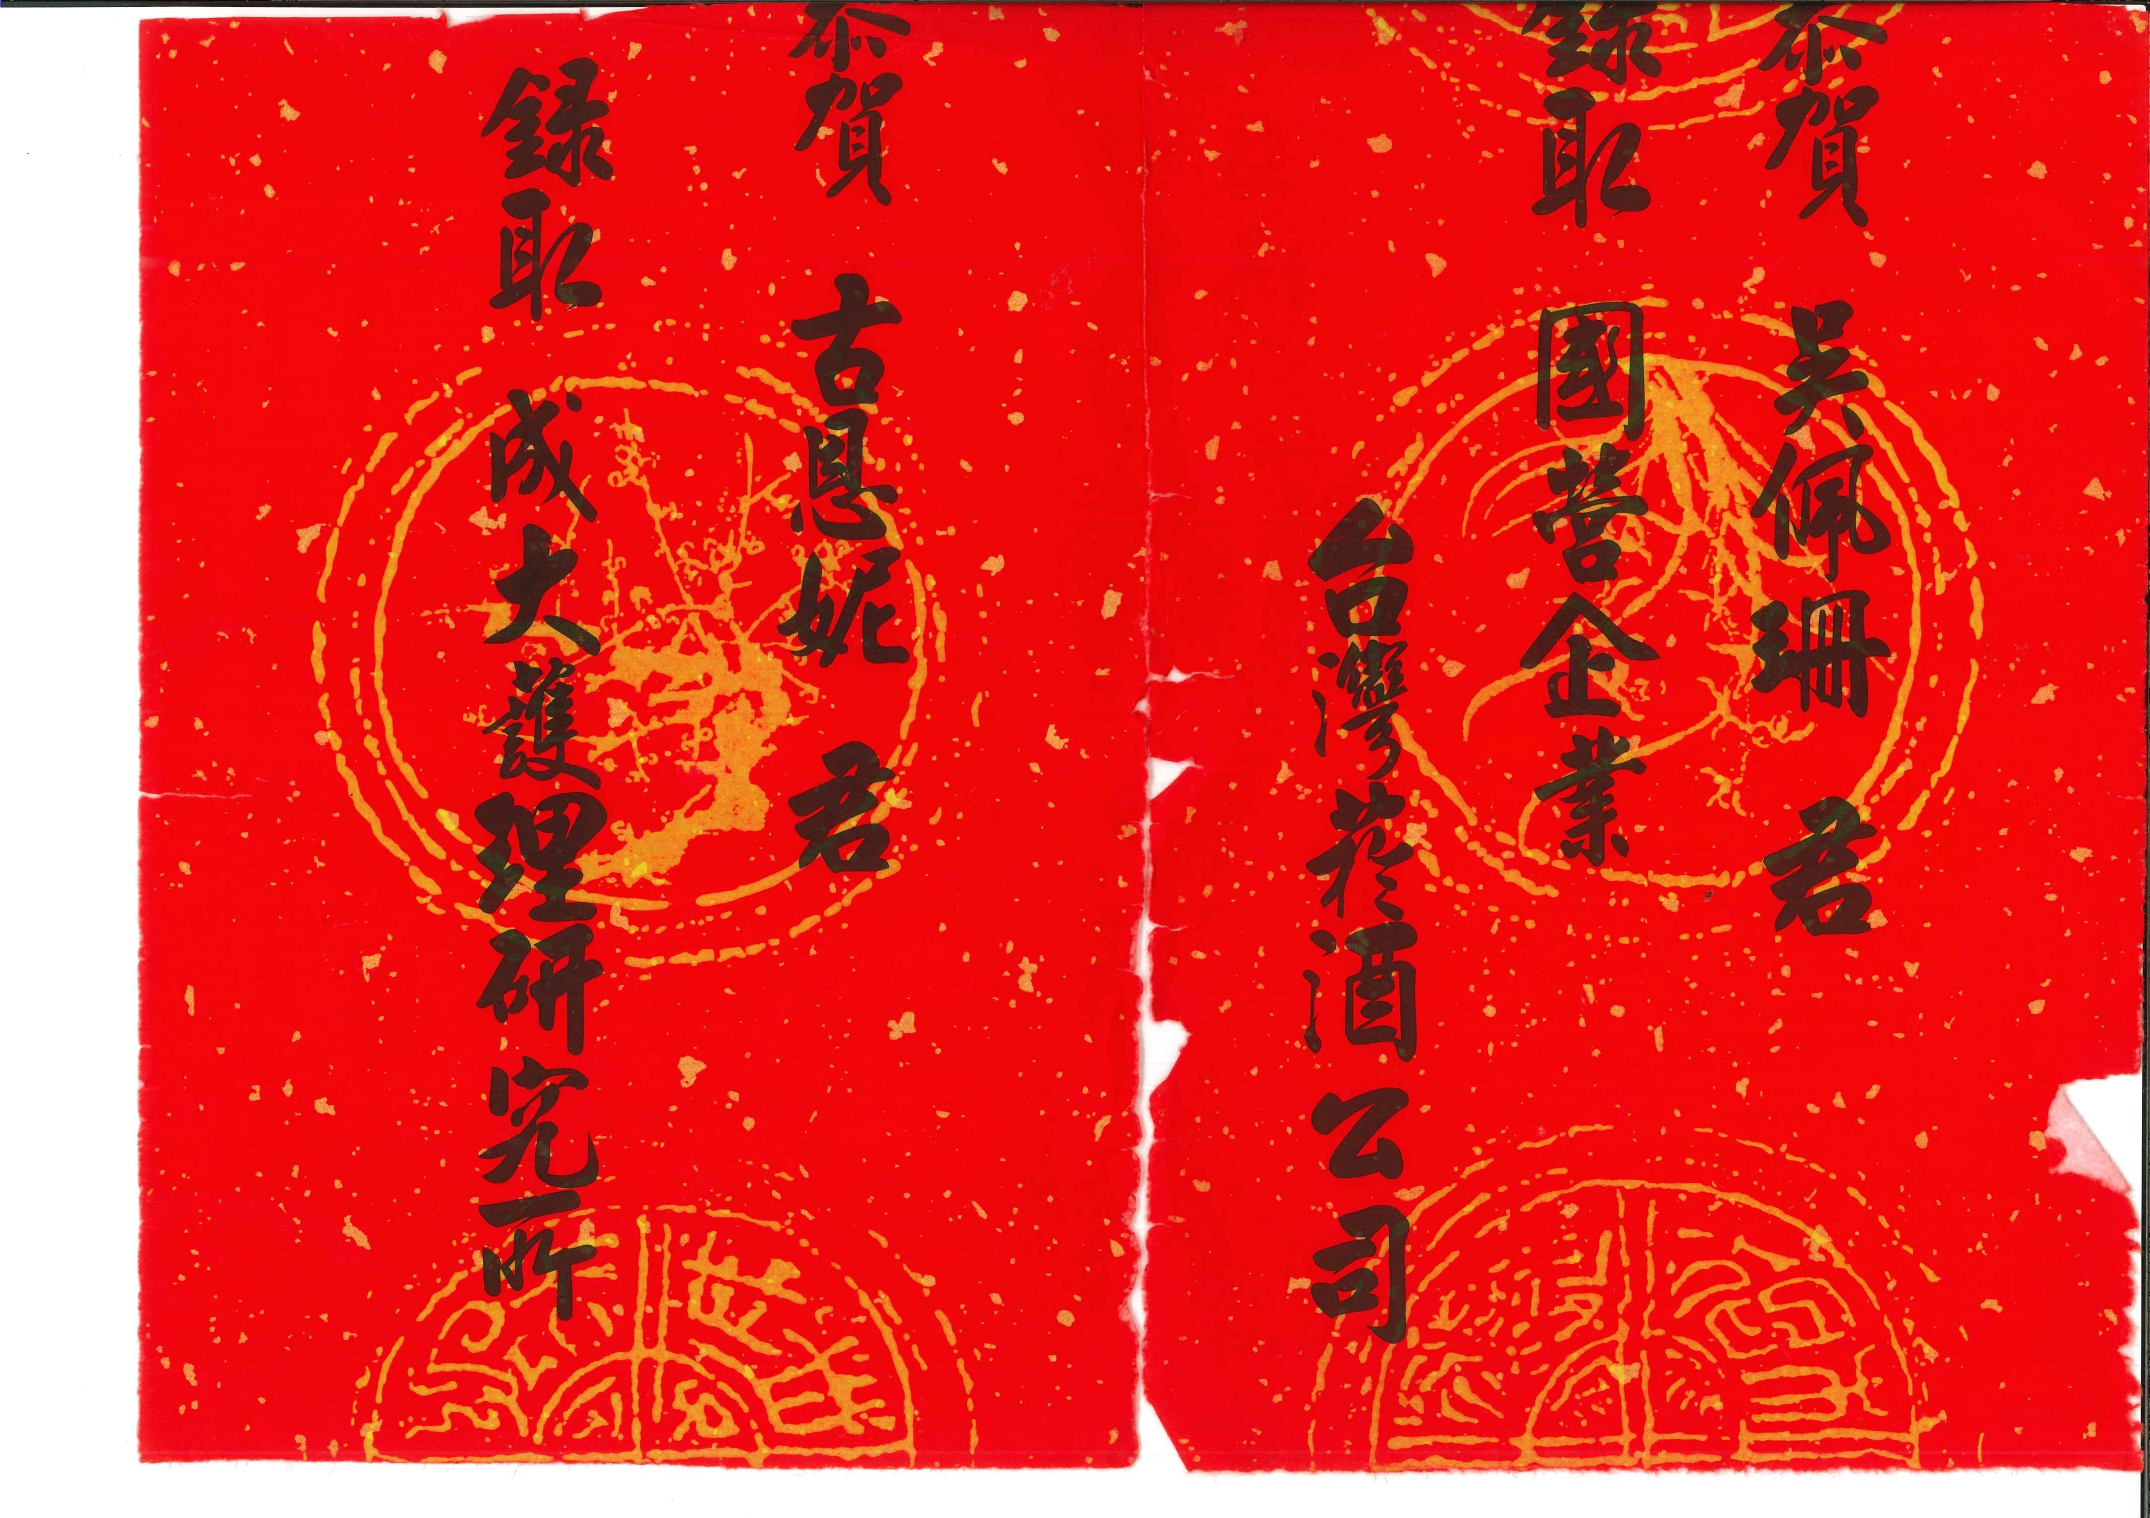 恭賀 吳佩珊 君
錄取 國營企業
台灣菸酒公司
恭賀 古恩妮 君
錄取 成大護理研究所